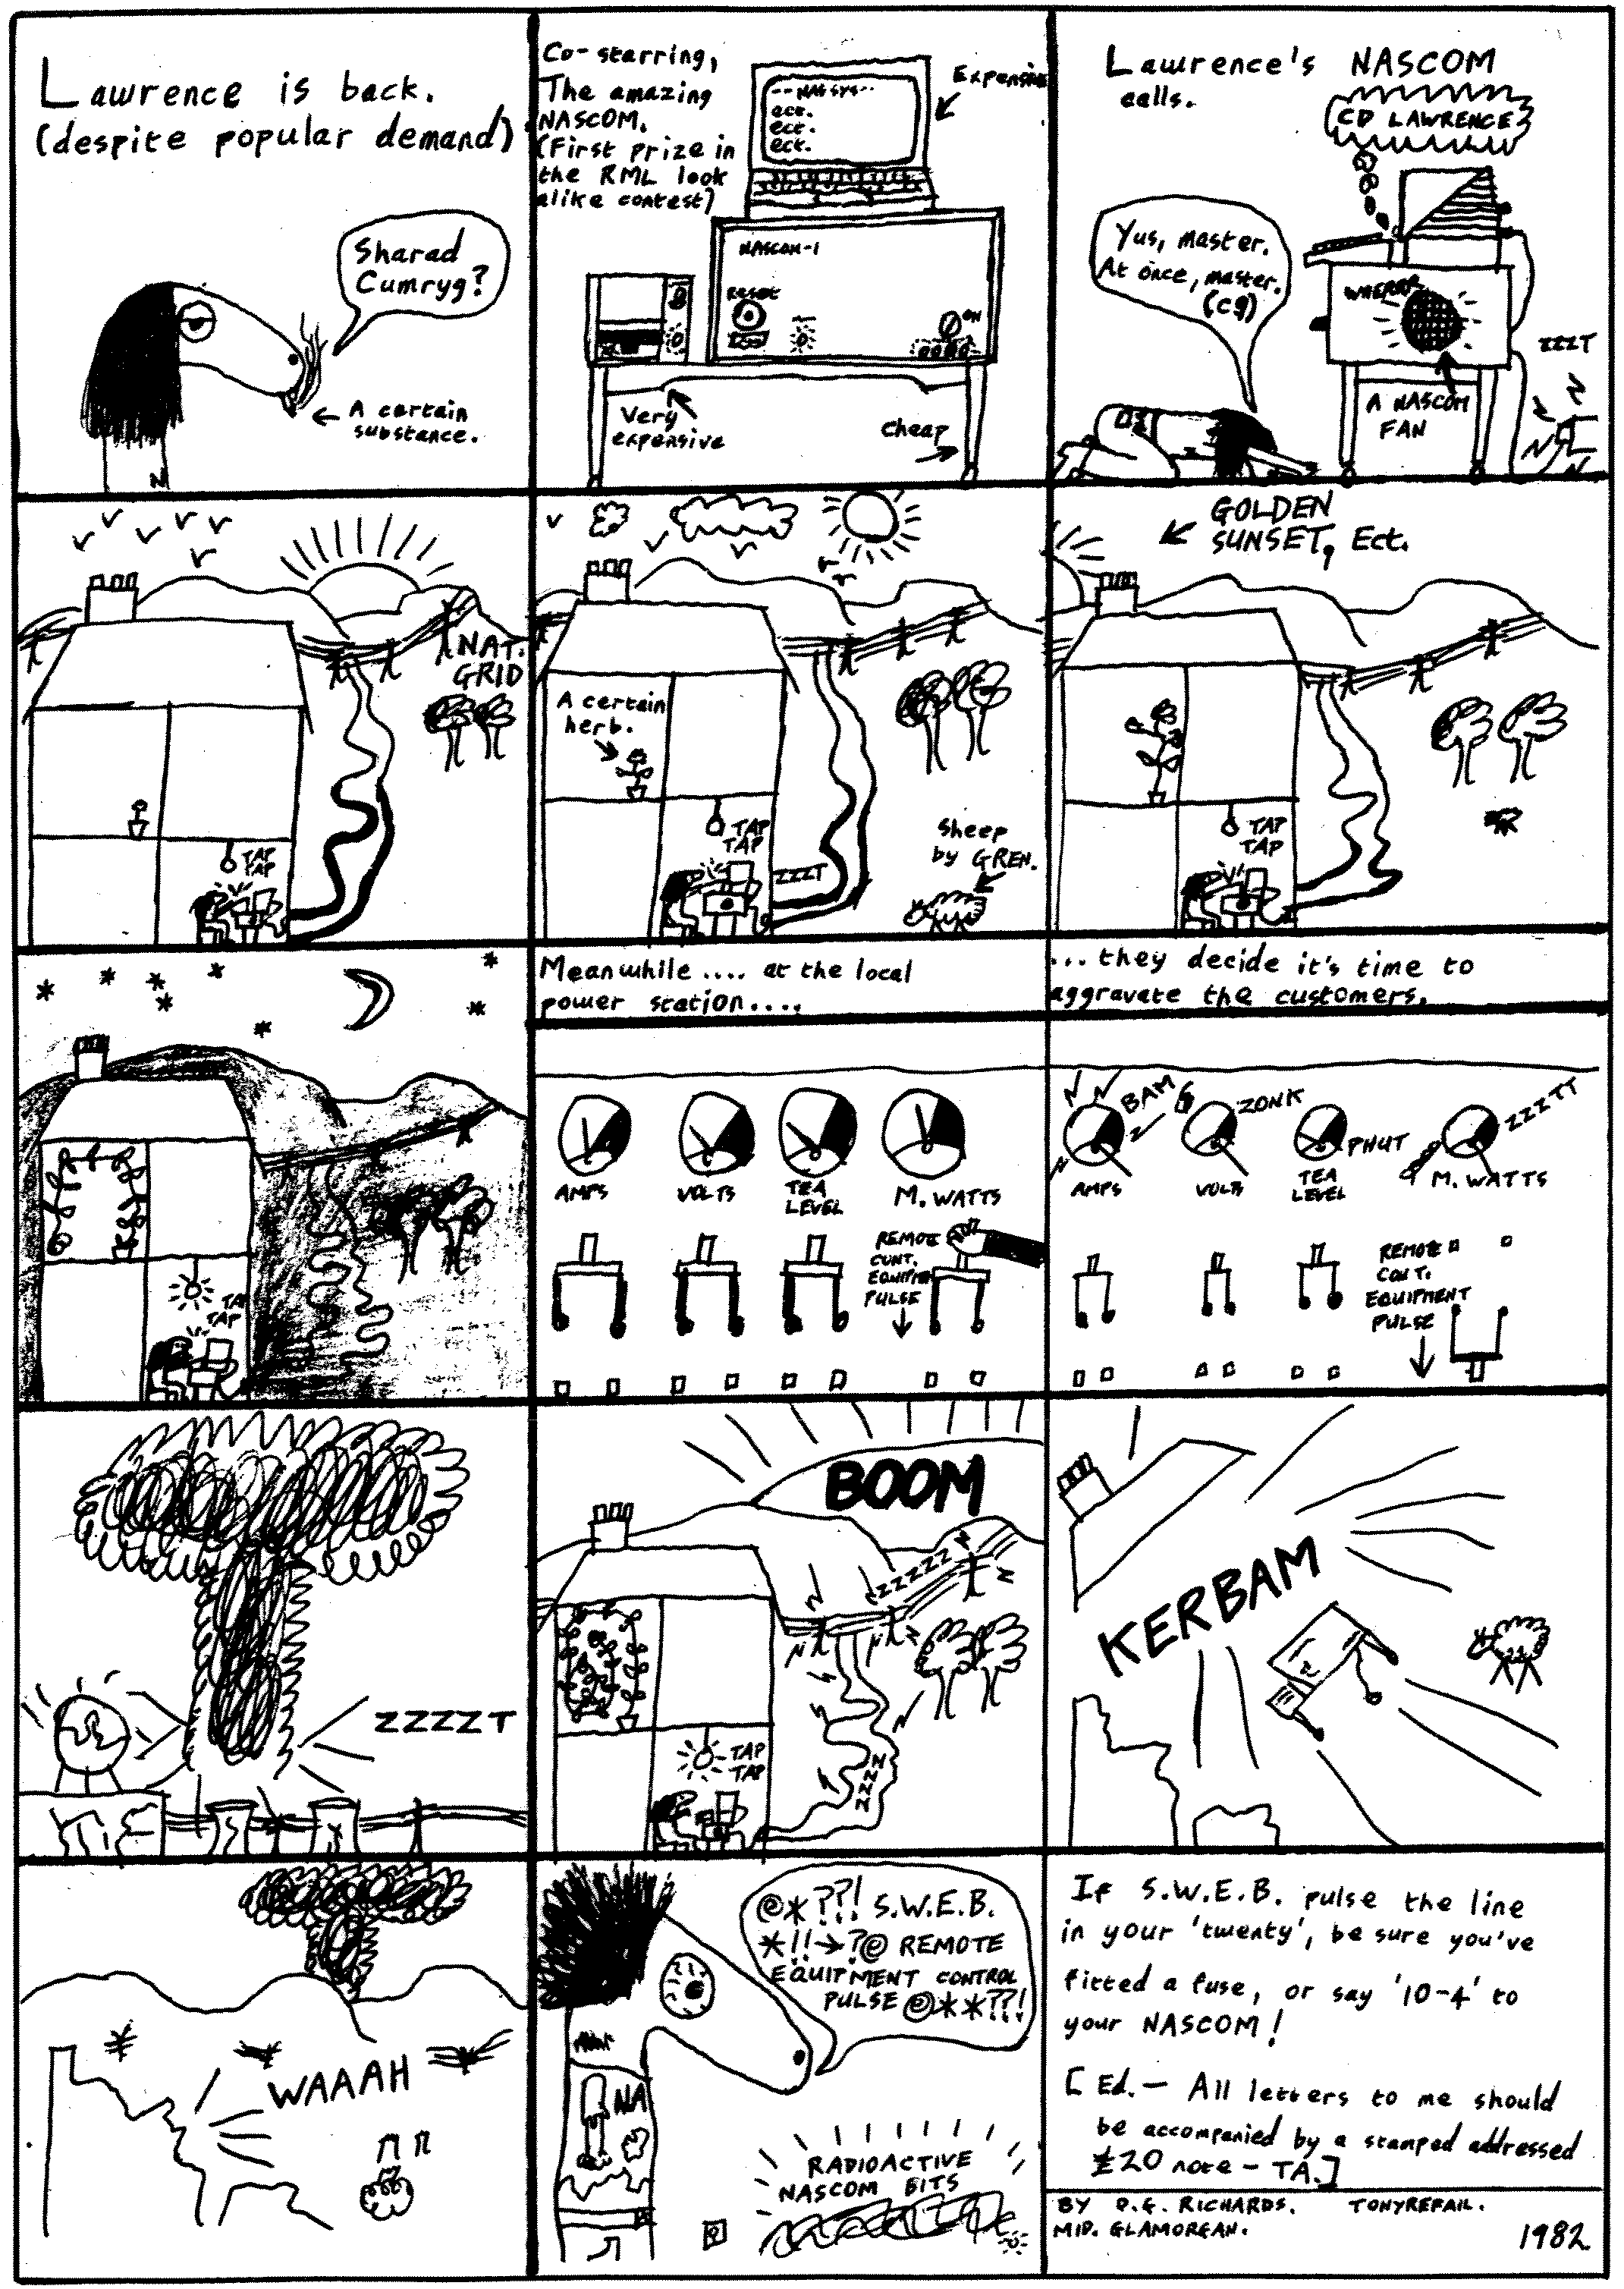 Lawrence is back.
(despite popular demand)
Sharad
Cumryg?
A certain
substance.
N
Co-starring,
The amazing
NASCOM.
(First prize in
the RML look
alike contest)
-- NAS SYS --
ect.
ect.
ect.
Expensive
NASCOM-1
Reset
ON
Very
expensive
Cheap
Lawrence's NASCOM
calls.
CD LAWRENCE
Yus, master.
At once, master.
(cg)
WHERRR
ZZZT
A NASCOM
FAN
NAT.
GRID
TAP
TAP
A certain
herb.
TAP
TAP
ZZZT
Sheep
by GREN.
GOLDEN
SUNSET, Ect.
TAP
TAP
TAP
TAP
Meanwhile.... at the local
power station....
AMPS
VOLTS
TEA
LEVEL
M. WATTS
REMOTE
CONT.
EQUIPME
PULSE
... they decide it's time to
aggravate the customers.
BAM
ZONK
PHUT
ZZZTT
AMPS
VOLTS
TEA
LEVEL
M. WATTS
REMOTE
CONT.
EQUIPMENT
PULSE
ZZZZT
BOOM
ZZZZZ
TAP
TAP
ZZZZ
KERBAM
WAAAH
@*??! S.W.E.B.
*!!→?@ REMOTE
EQUIPMENT CONTROL
PULSE @**??!
NA
RADIOACTIVE
NASCOM BITS
If S.W.E.B. pulse the line
in your 'twenty', be sure you've
fitted a fuse, or say '10-4' to
your NASCOM!
[Ed. - All letters to me should
be accompanied by a stamped addressed
£20 note - TA.]
BY D.G. RICHARDS. TONYREFAIL.
MID. GLAMORGAN.
1982